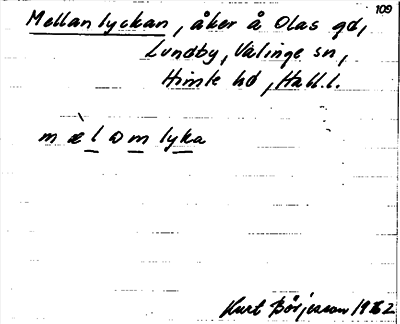 109
Mellanlyckan, åker å Olas gd,
Lundby, Valinge sn,
Himle hd, Hall.l.
mælomlyka
Kurt Börjesson 1932